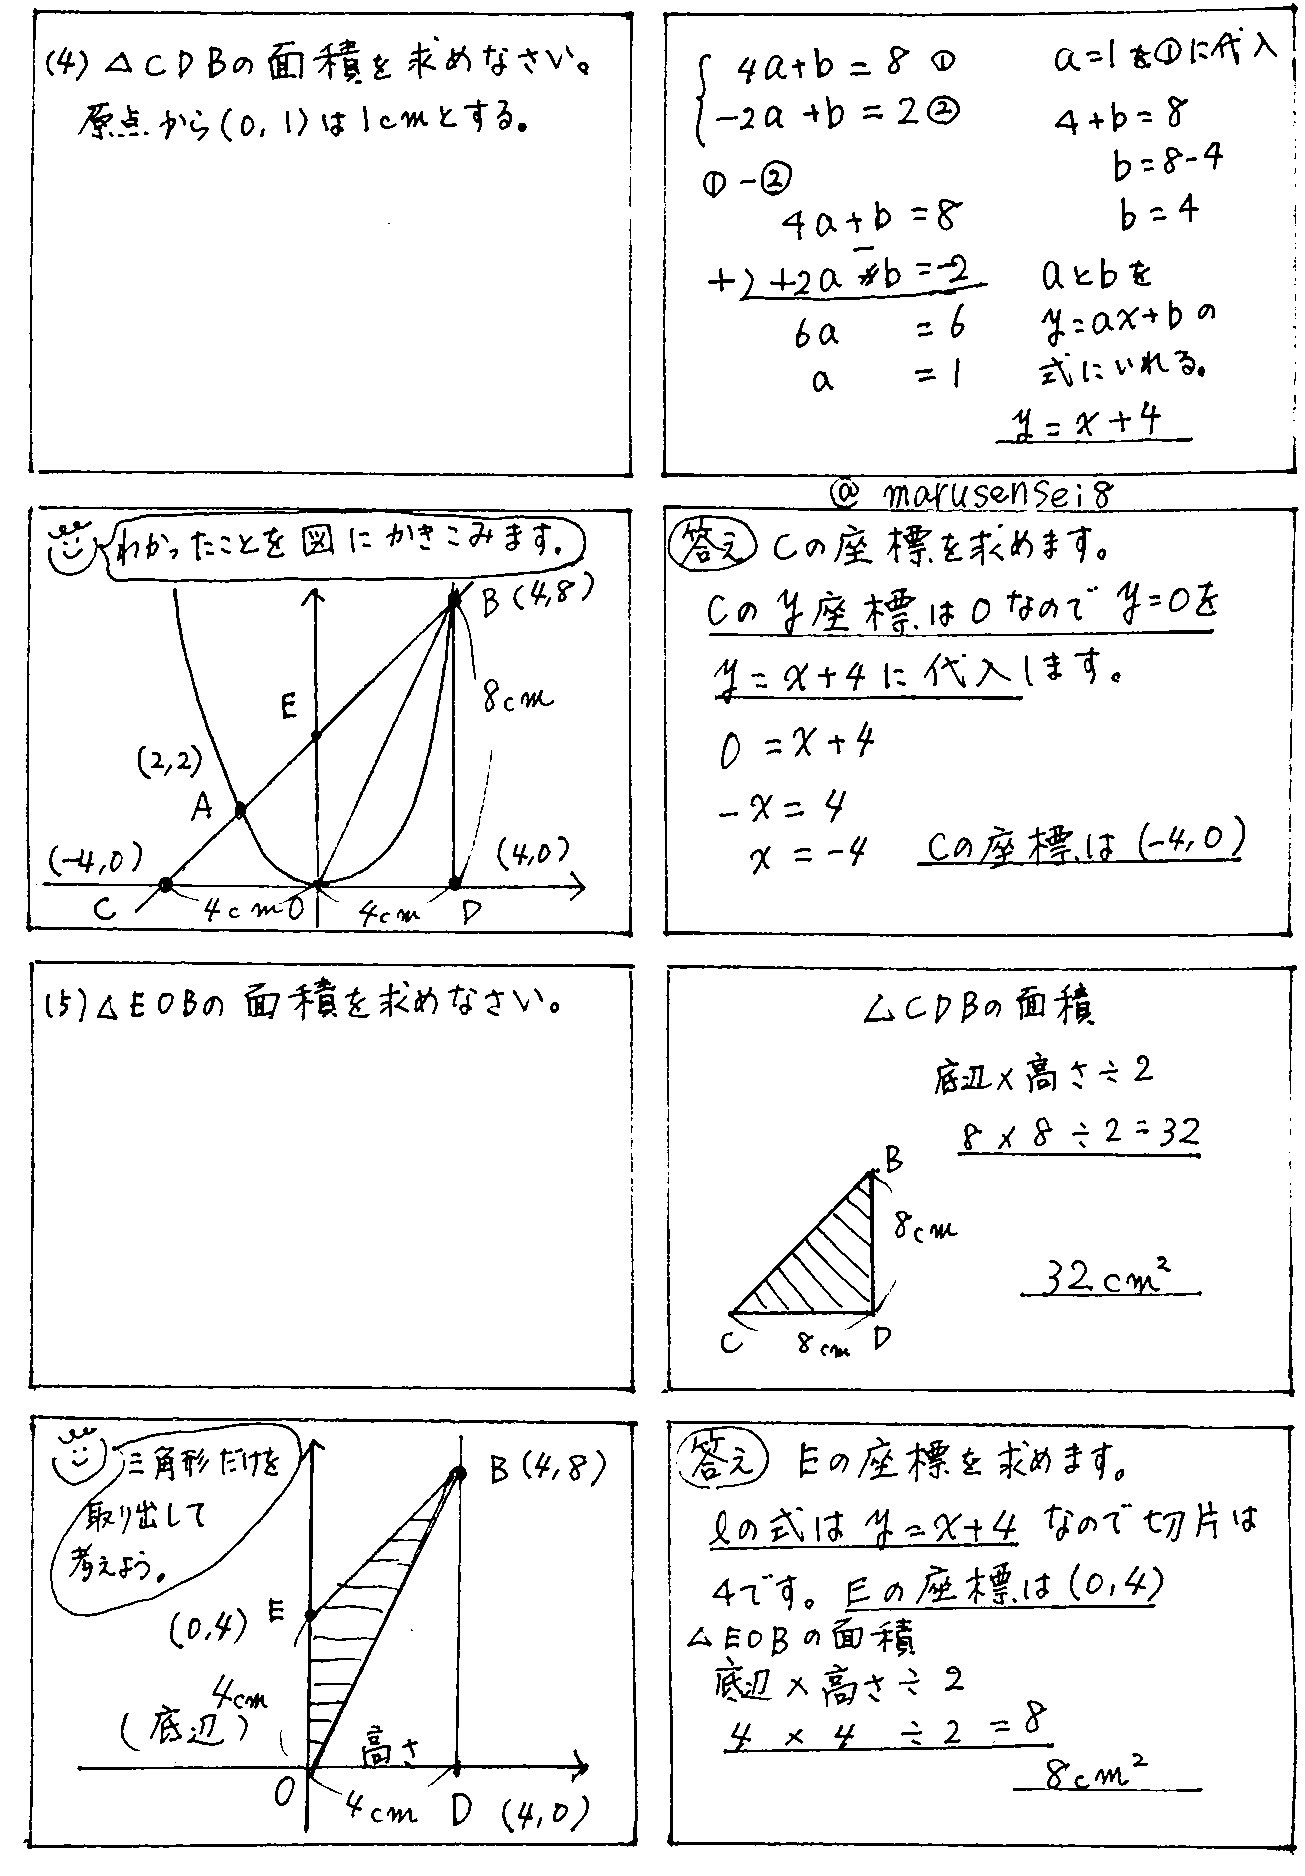 (4) △CDBの面積を求めなさい。
原点から(0,1)は1cmとする。
4a+b=8 ①
-2a+b=2 ②
①-②
4a+b=8
+) +2a-b=-2
6a =6
a =1
a=1を①に代入
4+b=8
b=8-4
b=4
aとbを
y=ax+bの
式にいれる。
y=x+4
@marusensei8
わかったことを図にかきこみます。
B(4,8)
8cm
E
(2,2)
A
(-4,0)
(4,0)
C
4cm
O
4cm
D
答え Cの座標を求めます。
Cのy座標は0なのでy=0を
y=x+4に代入します。
0=x+4
-x=4
x=-4 Cの座標は(-4,0)
(5)△EOBの面積を求めなさい。
△CDBの面積
底辺×高さ÷2
8×8÷2=32
B
8cm
32cm²
C
8cm
D
三角形だけを
取り出して
考えよう。
B(4,8)
(0,4) E
4cm
(底辺)
高さ
O
4cm
D (4,0)
答え Eの座標を求めます。
lの式はy=x+4なので切片は
4です。Eの座標は(0,4)
△EOBの面積
底辺×高さ÷2
4×4÷2=8
8cm²